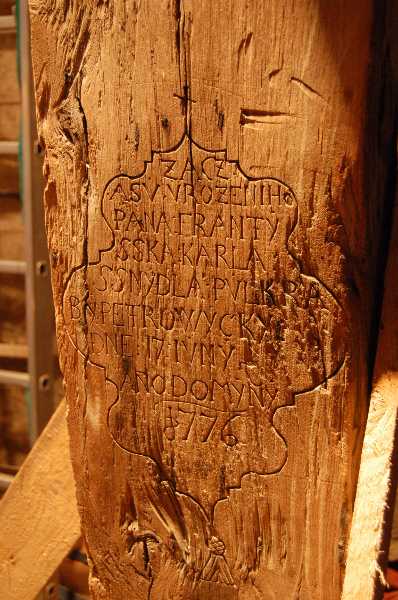 ZA CZ
ASV VROZENIHO
PANA FRANTY
SSKA KARLA
SSNYDLA PVLKRA
BN PETROWYCKYHO
DNE 17 IVNY
ANO DOMYNY
1776